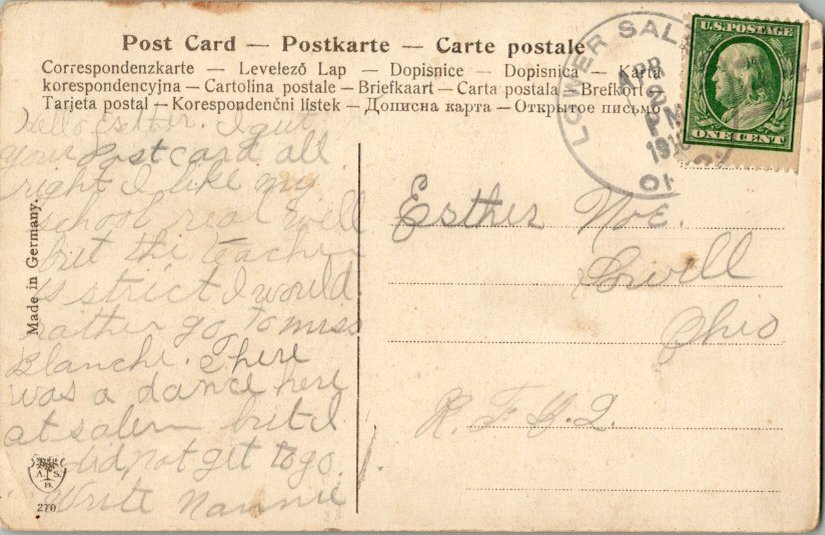 Post Card — Postkarte — Carte postale
Correspondenzkarte — Levelező Lap — Dopisnice — Dopisnica — Karta
korespondencyjna — Cartolina postale — Briefkaart — Carta postala — Brefkort
Tarjeta postal — Korespondenčni listek — Дописна карта — Открытое письмо
U.S. POSTAGE
ONE CENT
LOWER SAL
APR
PM
191
OH
Hello Esther. I got
your post card all
right I like my
school real well
but the teacher
is strict I would
rather go to miss
Blanche. There
was a dance here
at salem but I
did not get to go.
Write Nannie
Esther Noe.
Lowell
Ohio
R. F. D. 2.
Made in Germany.
A. S.
B.
270